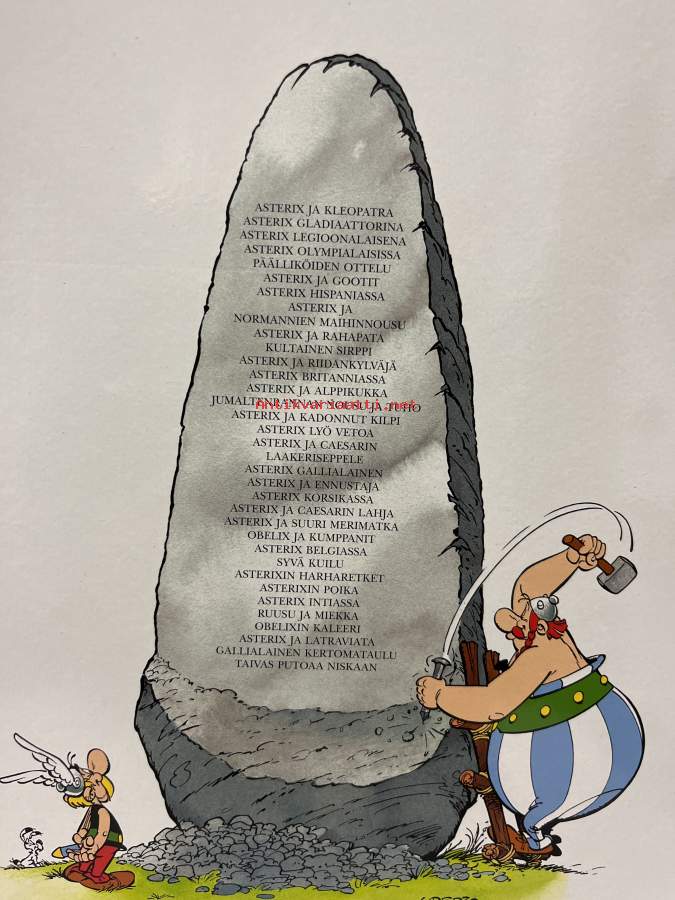 ASTERIX JA KLEOPATRA
ASTERIX GLADIAATTORINA
ASTERIX LEGIOONALAISENA
ASTERIX OLYMPIALAISISSA
PÄÄLLIKÖIDEN OTTELU
ASTERIX JA GOOTIT
ASTERIX HISPANIASSA
ASTERIX JA
NORMANNIEN MAIHINNOUSU
ASTERIX JA RAHAPATA
KULTAINEN SIRPPI
ASTERIX JA RIIDANKYLVÄJÄ
ASTERIX BRITANNIASSA
ASTERIX JA ALPPIKUKKA
JUMALTENRANNAN NOUSU JA TUHO
antikvariaatti.net
ASTERIX JA KADONNUT KILPI
ASTERIX LYÖ VETOA
ASTERIX JA CAESARIN
LAAKERISEPPELE
ASTERIX GALLIALAINEN
ASTERIX JA ENNUSTAJA
ASTERIX KORSIKASSA
ASTERIX JA CAESARIN LAHJA
ASTERIX JA SUURI MERIMATKA
OBELIX JA KUMPPANIT
ASTERIX BELGIASSA
SYVÄ KUILU
ASTERIXIN HARHARETKET
ASTERIXIN POIKA
ASTERIX INTIASSA
RUUSU JA MIEKKA
OBELIXIN KALEERI
ASTERIX JA LATRAVIATA
GALLIALAINEN KERTOMATAULU
TAIVAS PUTOAA NISKAAN